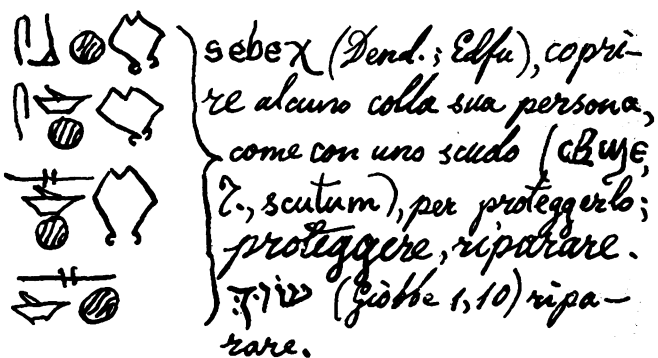 sebeχ (Dend.; Edfu), copri-
re alcuno colla sua persona,
come con uno scudo (ⲥⲃϣⲉ,
T., scutum), per proteggerlo;
proteggere, riparare.
שׂוּךְ (Giobbe 1,10) ripa-
rare.